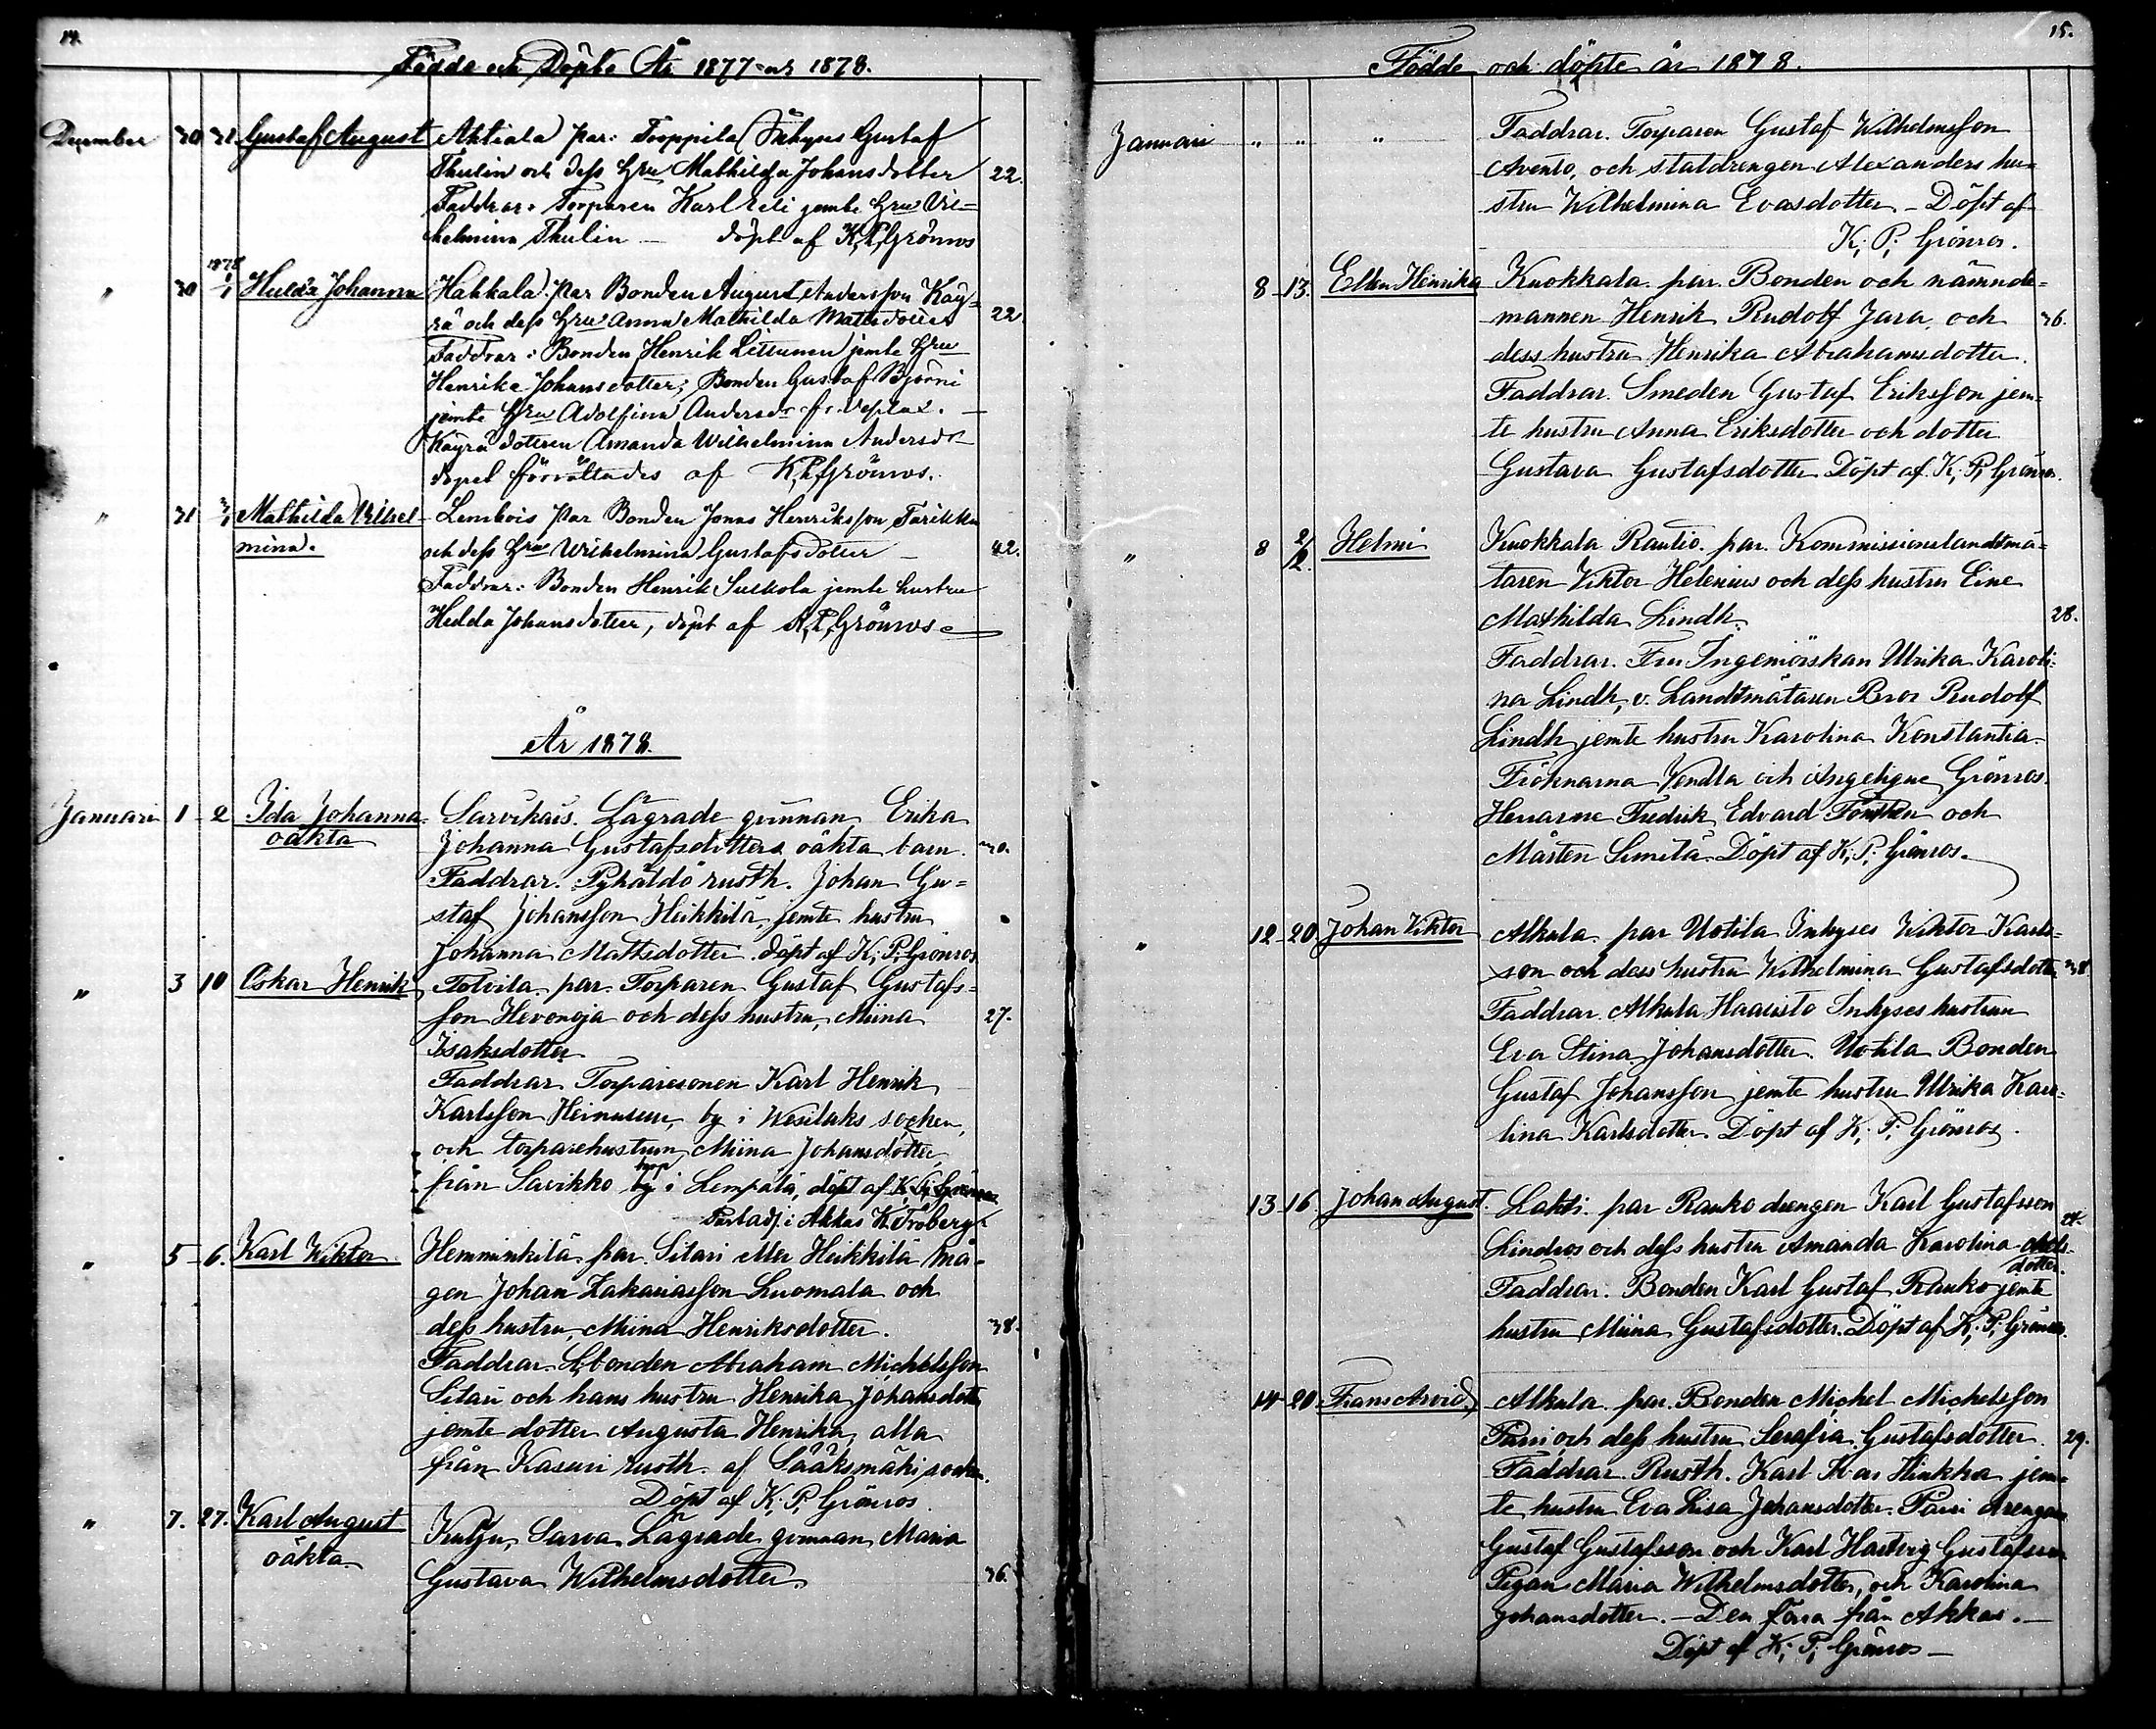 14.
Födde och Döpte År 1877 och 1878.
December 30 31 Gustaf August Aktiala par: Torppila Inhyses Gustaf
Thulin och dess hru Mathilda Johansdotter 22.
Faddrar: Torparen Karl Eeli jemte hru Vil-
helmina Thulin — döpt af K, P, Grönros
" 30 1878 1/1 Hulda Johanna Hakkala par Bonden August Andersson Käy-
rä och dess hru Anna Mathilda Mattsdotter 22
Faddrar: Bonden Henrik Littunen jemte hru
Henrika Johansdotter; Bonden Gustaf Björni
jemte hru Adolfina Andersdr fr. Veplax. —
Käyrä dottren Amanda Wilhelmina Andersdr
dopet förrättades af K, P, Grönros.
" 31 3/1 Mathilda Vilhel- Lembois par Bonden Jonas Henriksson Tarikka
mina. och dess hru Wilhelmina Gustafsdotter — 42.
Faddrar: Bonden Henrik Suckola jemte hustru
Hedda Johansdotter, döpt af K, P, Grönros
År 1878.
Januari 1 2 Ida Johanna Sarvikais. Lägrade qvinnan Erika
oäkta Johanna Gustafsdotters oäkta barn. 30.
Faddrar. Pyhältö rusth. Johan Gu=
staf Johansson Heikkilä, jemte hustru
Johanna Mattsdotter. döpt af K; P; Grönros
" 3 10 Oskar Henrik Tolvila. par. Torparen Gustaf Gustafs=
son Hevonoja och dess hustru, Miina 27.
Isaksdotter.
Faddrar. Torparesonen Karl Henrik
Karlsson Heinusuu by i Wesilaks socken,
och torparehustrun Miina Johansdotter
från Savikko by i Lempälä, döpt af K. P. Grönros
Past adj. i Akkas K. Fröberg
" 5 6. Karl Wiktor Hemminkilä. par. Sitari eller Heikkilä må-
gen Johan Zakariasson Luomala och
dess hustru, Miina Henriksdotter. 38.
Faddrar. L; bonden Abraham Michelsson
Sitari och hans hustru Henrika Johansdotter
jemte dotter Augusta Henrika, alla
från Kasuri rusth. af Sääksmäki socken.
Döpt af K. P. Grönros.
" 7. 27. Karl August Kulju, Sarva Lägrade qvinnan Maria
oäkta. Gustava Wilhelmsdotter. 36.
15.
Födde och döpte år 1878.
Januari " " " Faddrar. Torparen Gustaf Wilhelmsson
Avento, och statdrengen Alexanders hu=
stru Wilhelmina Evasdotter. — Döpt af
K; P; Grönros.
8 13. Ellen Henrika Kuokkala. par. Bonden och nämnde=
mannen Henrik Rudolf Jara, och 36.
dess hustru Henrika Abrahamsdotter.
Faddrar. Smeden Gustaf Eriksson jem=
te hustru Anna Eriksdotter och dotter
Gustava Gustafsdotter Döpt af K; P; Grönros.
" 8 2/2. Helmi Kuokkala Rautio. par. Kommissionslandtmä=
taren Viktor Helenius och dess hustru Eine
Mathilda Lindh. 28.
Faddrar. Fru Ingeniörskan Ulrika Karoli-
na Lindh, v. Landtmätaren Bror Rudolf
Lindh jemte hustru Karolina Konstantia.
Fröknarna Vendla och Angelique Grönros.
Herrarne Fredrik Edvard och
Mårten Simelä. Döpt af K; P; Grönros.
" 12 20 Johan Viktor Alkula. par Uotila Inhyses Wiktor Karls-
son och dess hustru Wilhelmina Gustafsdotter 38.
Faddrar. Alkula Haavisto Inhyses hustrun
Eva Stina Johansdotter. Uotila Bonden
Gustaf Johansson jemte hustru Ulrika Karo=
lina Karlsdotter. Döpt af K; P; Grönros.
13 16 Johan August. Lahti. par Rauko drengen Karl Gustafsson
Lindros och dess hustru Amanda Karolina
dotter.
Faddrar. Bonden Karl Gustaf Rauko jemte
hustru Miina Gustafsdotter. Döpt af K; P; Grönros.
14 20 Frans Arvid. Alkula. par. Bonden Michel Michelsson
Passi och dess hustru Serafia Gustafsdotter. 29.
Faddrar Rusth. Karl Ivar Hinkka jem-
te hustru Eva Lisa Johansdotter. Passi drengarne
Gustaf Gustafsson och Karl Hartvig Gustafsson
Pigan Maria Wilhelmsdotter, och Karolina
Johansdotter. — Den förra från Akkas. —
Döpt af K; P; Grönros —